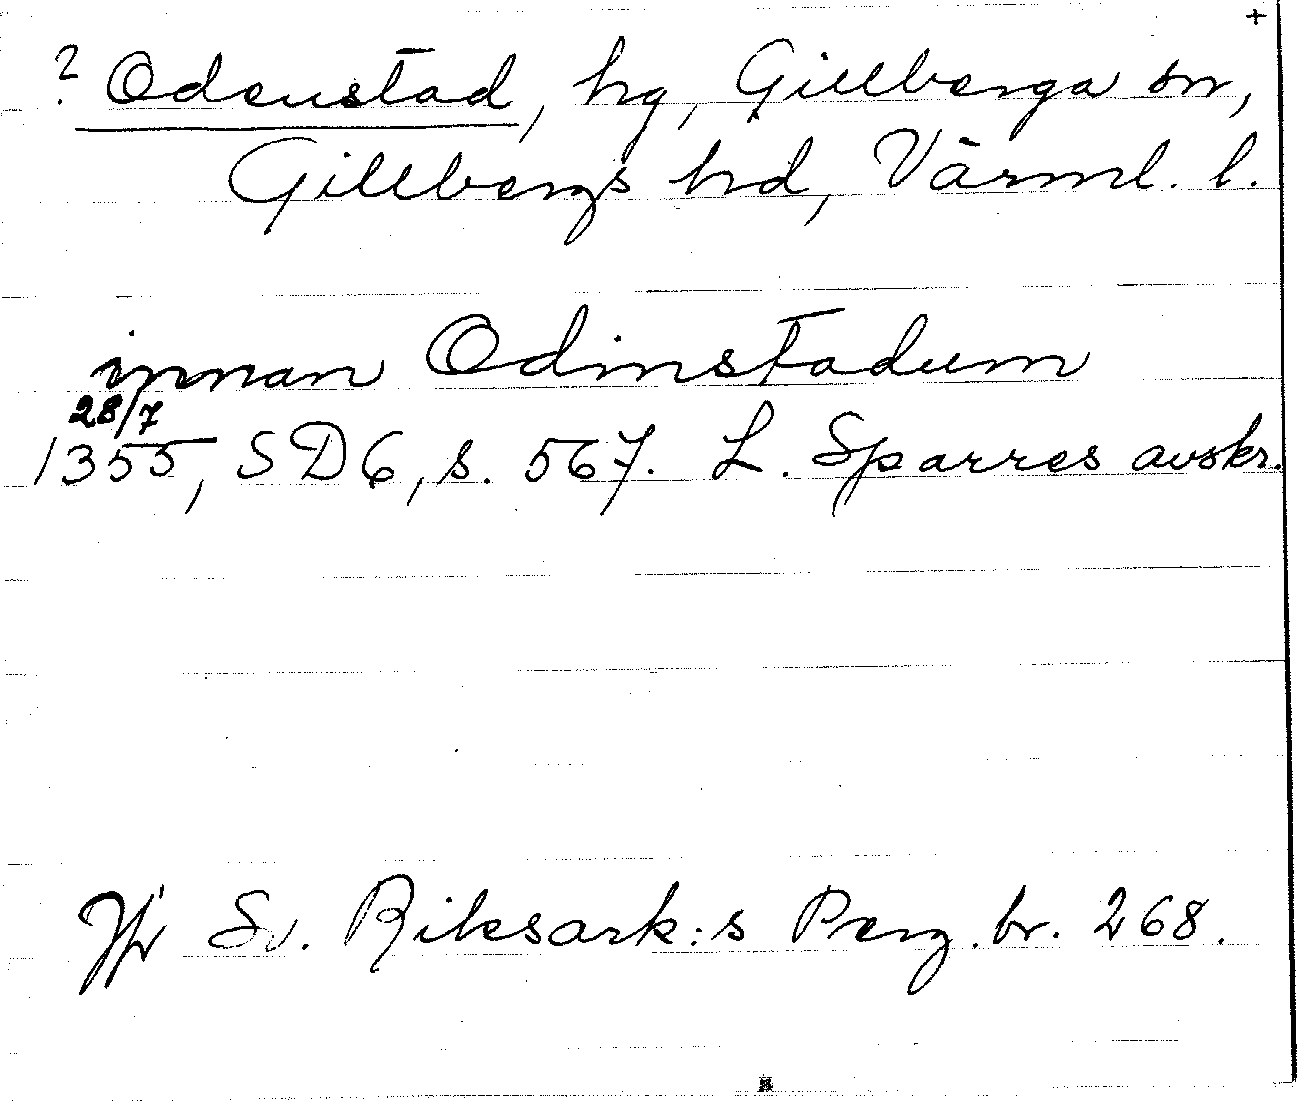 +
? Odenstad, hg, Gillberga sn,
Gillbergs hd, Värml. l.
innan Odinstadum
28/7
1355, SD6, s. 567. L. Sparres avskr.
Jfr Sv. Riksark:s Perg. br. 268.